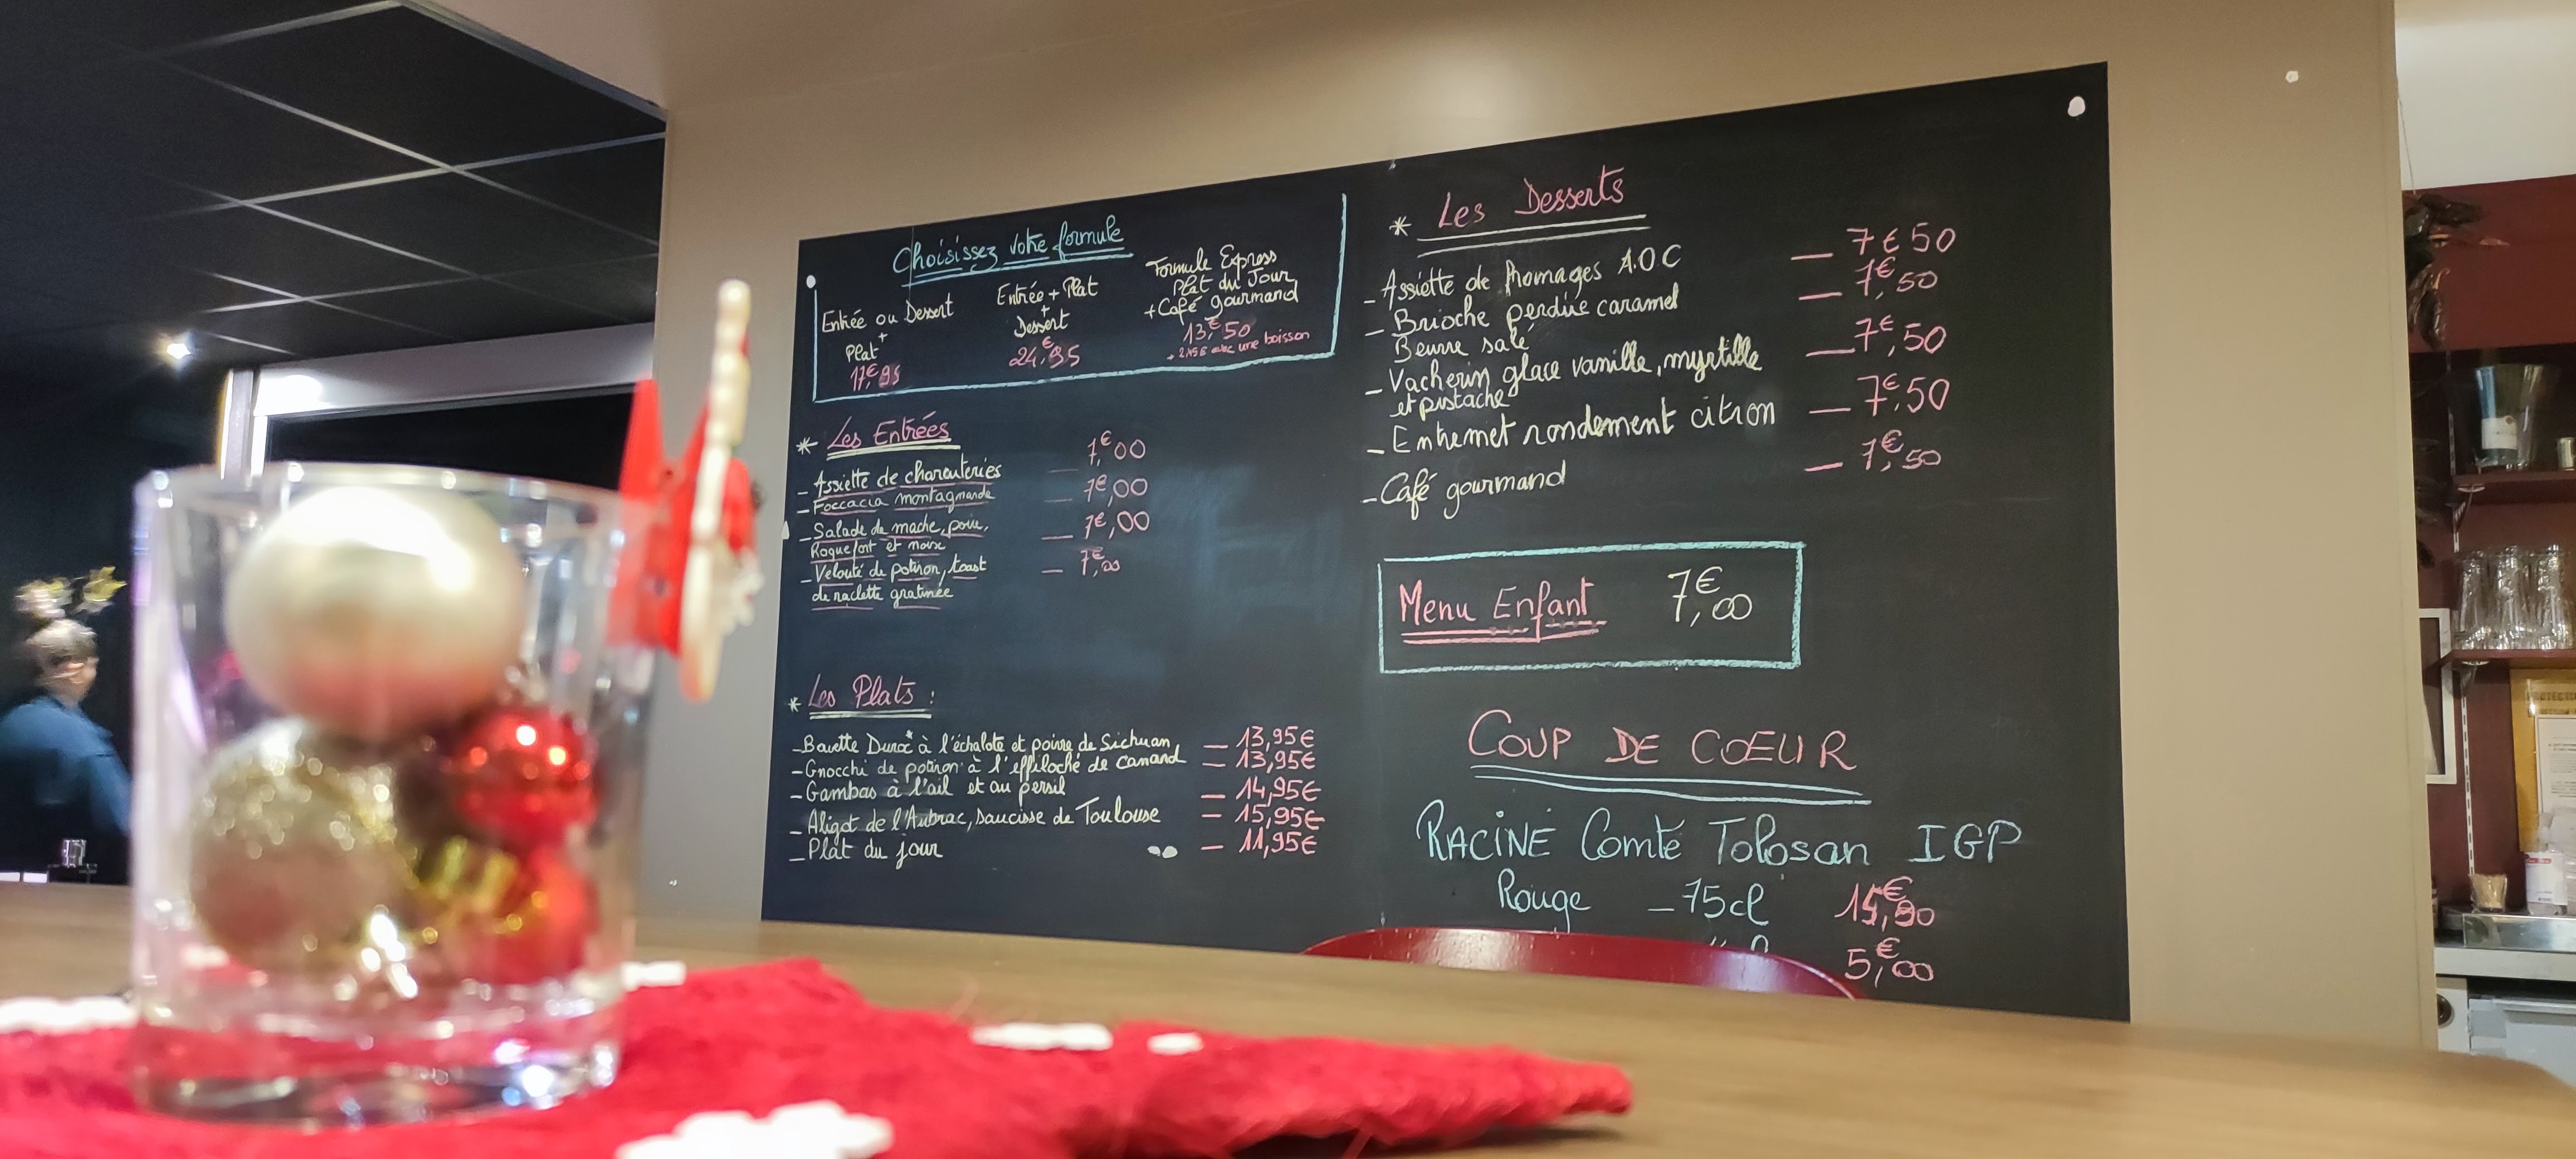 Choisissez votre formule
Entrée ou Dessert
+
Plat
17,€95
Entrée + Plat
+
Dessert
24,€95
Formule Express
Plat du Jour
+ Café gourmand
13,€50
+ 2,15€ avec une boisson
* Les Entrées
- Assiette de charcuteries 7,€00
- Foccacia montagnarde 7€,00
- Salade de mache, poire, 7€,00
Roquefort et noix
- Velouté de potiron, toast 7,€00
de raclette gratinée
* Les Plats :
- Bavette Duroc* à l'échalote et poivre de Sichuan - 13,95€
- Gnocchi de potiron à l'effiloché de canard - 13,95€
- Gambas à l'ail et au persil - 14,95€
- Aligot de l'Aubrac, saucisse de Toulouse - 15,95€
- Plat du jour - 11,95€
* Les Desserts
- Assiette de fromages A.O.C - 7€50
- Brioche perdue caramel - 7,€50
Beurre salé
- Vacherin glace vanille, myrtille - 7€,50
et pistache
- Entremet rondement citron - 7€,50
- Café gourmand - 7,€50
Menu Enfant 7,€00
COUP DE COEUR
RACINE Comté Tolosan IGP
Rouge - 75cl ,€90
5,€00